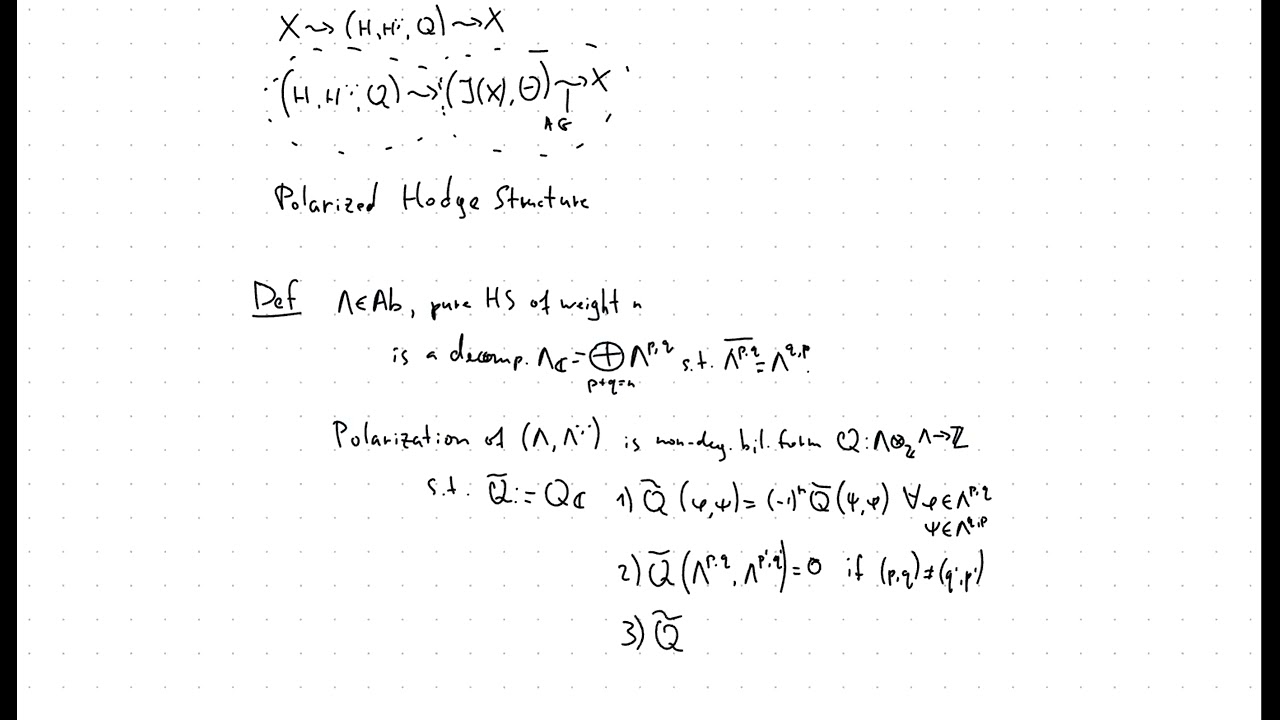 X ⇝ (H, H^{··}, Q) ⇝ X
(H, H^{··}, Q) ⇝ (J(X), Θ) ⇝ X
AG
Polarized Hodge Structure
Def Λ∈Ab, pure HS of weight n
is a decomp. Λ_ℂ = ⊕_{p+q=n} Λ^{p,q} s.t. \overline{Λ^{p,q}} = Λ^{q,p}.
Polarization of (Λ, Λ^{··}) is non-deg. bil. form Q: Λ⊗_ℤ Λ → ℤ
s.t. Q̃ := Q_ℂ 1) Q̃(φ,ψ) = (-1)^n Q̃(ψ,φ) ∀φ∈Λ^{p,q}
ψ∈Λ^{q,p}
2) Q̃(Λ^{p,q}, Λ^{p',q'}) = 0 if (p,q) ≠ (q',p')
3) Q̃